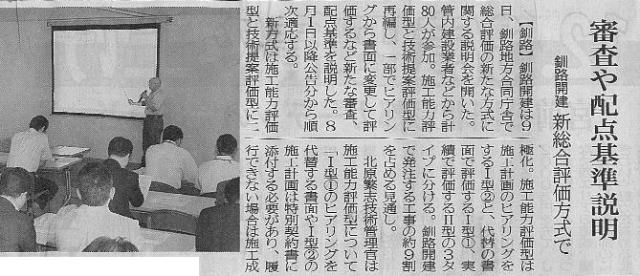 審査や配点基準説明
釧路開建 新総合評価方式で
【釧路】釧路開建は9
日、釧路地方合同庁舎で
総合評価の新たな方式に
関する説明会を開いた。
管内建設業者などから計
80人が参加。施工能力評
価型と技術提案評価型に
再編し、一部でヒアリン
グから書面に変更して評
価するなど新たな審査、
配点基準を説明した。8
月1日以降公告分から順
次適応する。
新方式は施工能力評価
型と技術提案評価型に二
極化。施工能力評価型は
施工計画のヒアリングを
するⅠ型②と、代替の書
面で評価するⅠ型①、実
績で評価するⅡ型の3タ
イプに分ける。釧路開建
で発注する工事の約9割
を占める見通し。
北原繁志技術管理官は
施工能力評価型について
「Ⅰ型①のヒアリングを
代替する書面やⅠ型②の
施工計画は特別契約書に
添付する必要があり、履
行できない場合は施工成